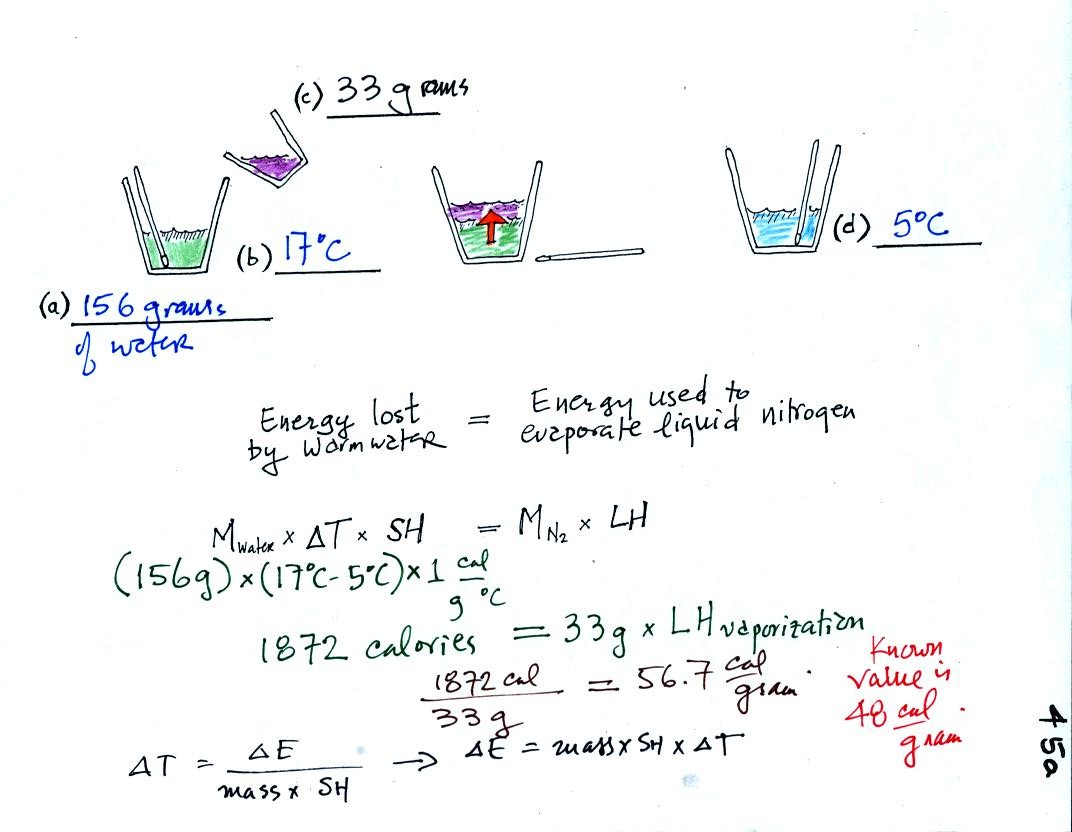 (c) 33 grams
(b) 17°C
(d) 5°C
(a) 156 grams
of water
Energy lost
by warm water
=
Energy used to
evaporate liquid nitrogen
M water × ΔT × SH = M N2 × LH
(156g) × (17°C - 5°C) × 1 cal / g °C
1872 calories = 33g × LH vaporization
1872 cal / 33g = 56.7 cal / gram .
Known
value is
48 cal / gram .
ΔT = ΔE / mass x SH → ΔE = mass x SH x ΔT
45a